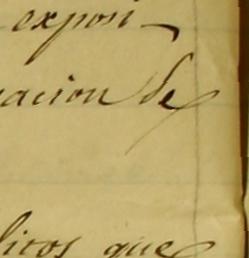 exposi-
acion de
licos que